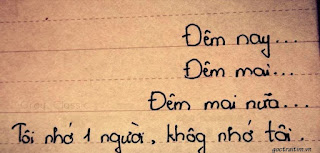 Đêm nay...
Đêm mai...
Đêm mai nữa...
Tôi nhớ 1 người, khôg nhớ tôi.
goctraitim.vn